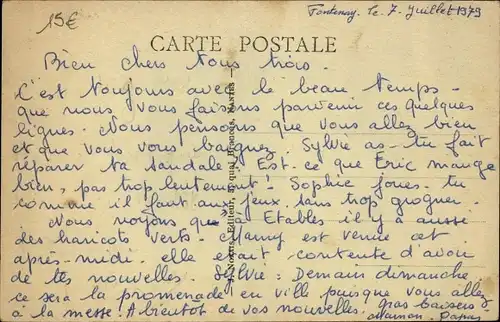 15€
Fontenay, le 7 Juillet 1979
CARTE POSTALE
Bien chers tous trois.
C'est toujours avec le beau temps
que nous vous faisons parvenir ces quelques
lignes. Nous pensons que vous allez bien
et que vous vous baignez. Sylvie as-tu fait
réparer ta sandale. Est-ce que Éric mange
bien, pas trop lentement! Sophie joues-tu
comme il faut aux jeux sans trop grogner.
Nous voyons que à Etables il y a aussi
des haricots verts. Mamy est venue cet
après-midi. elle était contente d'avoir
de tes nouvelles. Sylvie: Demain dimanche
ce sera la promenade en ville puisque vous allez
à la messe. A bientôt de vos nouvelles. gros baisers
maman. Papa.
Nozais, Editeur, NANTES